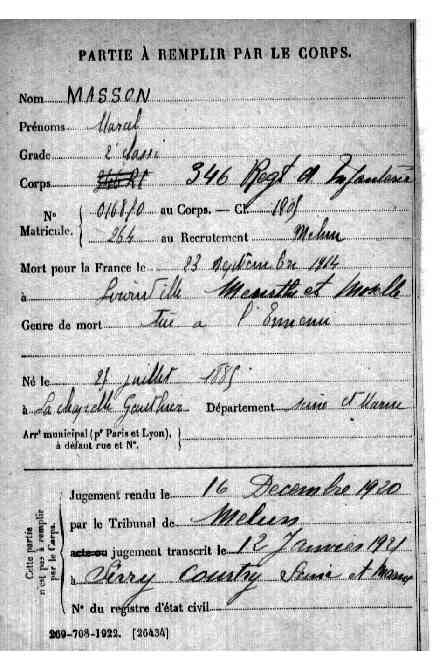 PARTIE À REMPLIR PAR LE CORPS.
Nom MASSON
Prénoms Marcel
Grade 2e Classe
Corps 346 Regt d'Infanterie
N° Matricule. { 016870 au Corps. — Cl. 1905
264 au Recrutement Melun
Mort pour la France le 23 Septembre 1914
à Meurthe et Moselle
Genre de mort tué à l'Ennemi
Né le juillet 1885
à La Chapelle Gauthier Département Seine et Marne
Arrt municipal (pr Paris et Lyon), à défaut rue et N°. }
Cette partie n'est pas à remplir par le Corps.
Jugement rendu le 16 Decembre 1920
par le Tribunal de Melun
acte ou jugement transcrit le 12 Janvier 1921
à Courtry Seine et Marne
N° du registre d'état civil
269-708-1922. [26434]